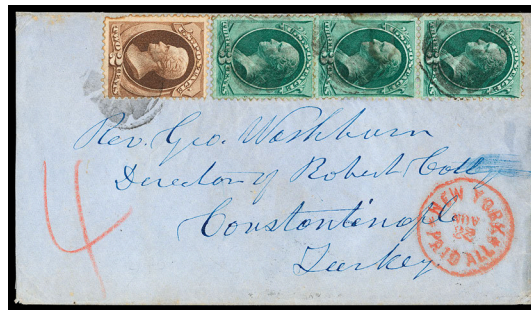 Rev. Geo. Washburn
Director of Robert Colleg
Constantinople
Turkey.
4
NEW YORK
AUG
22
PAID ALL